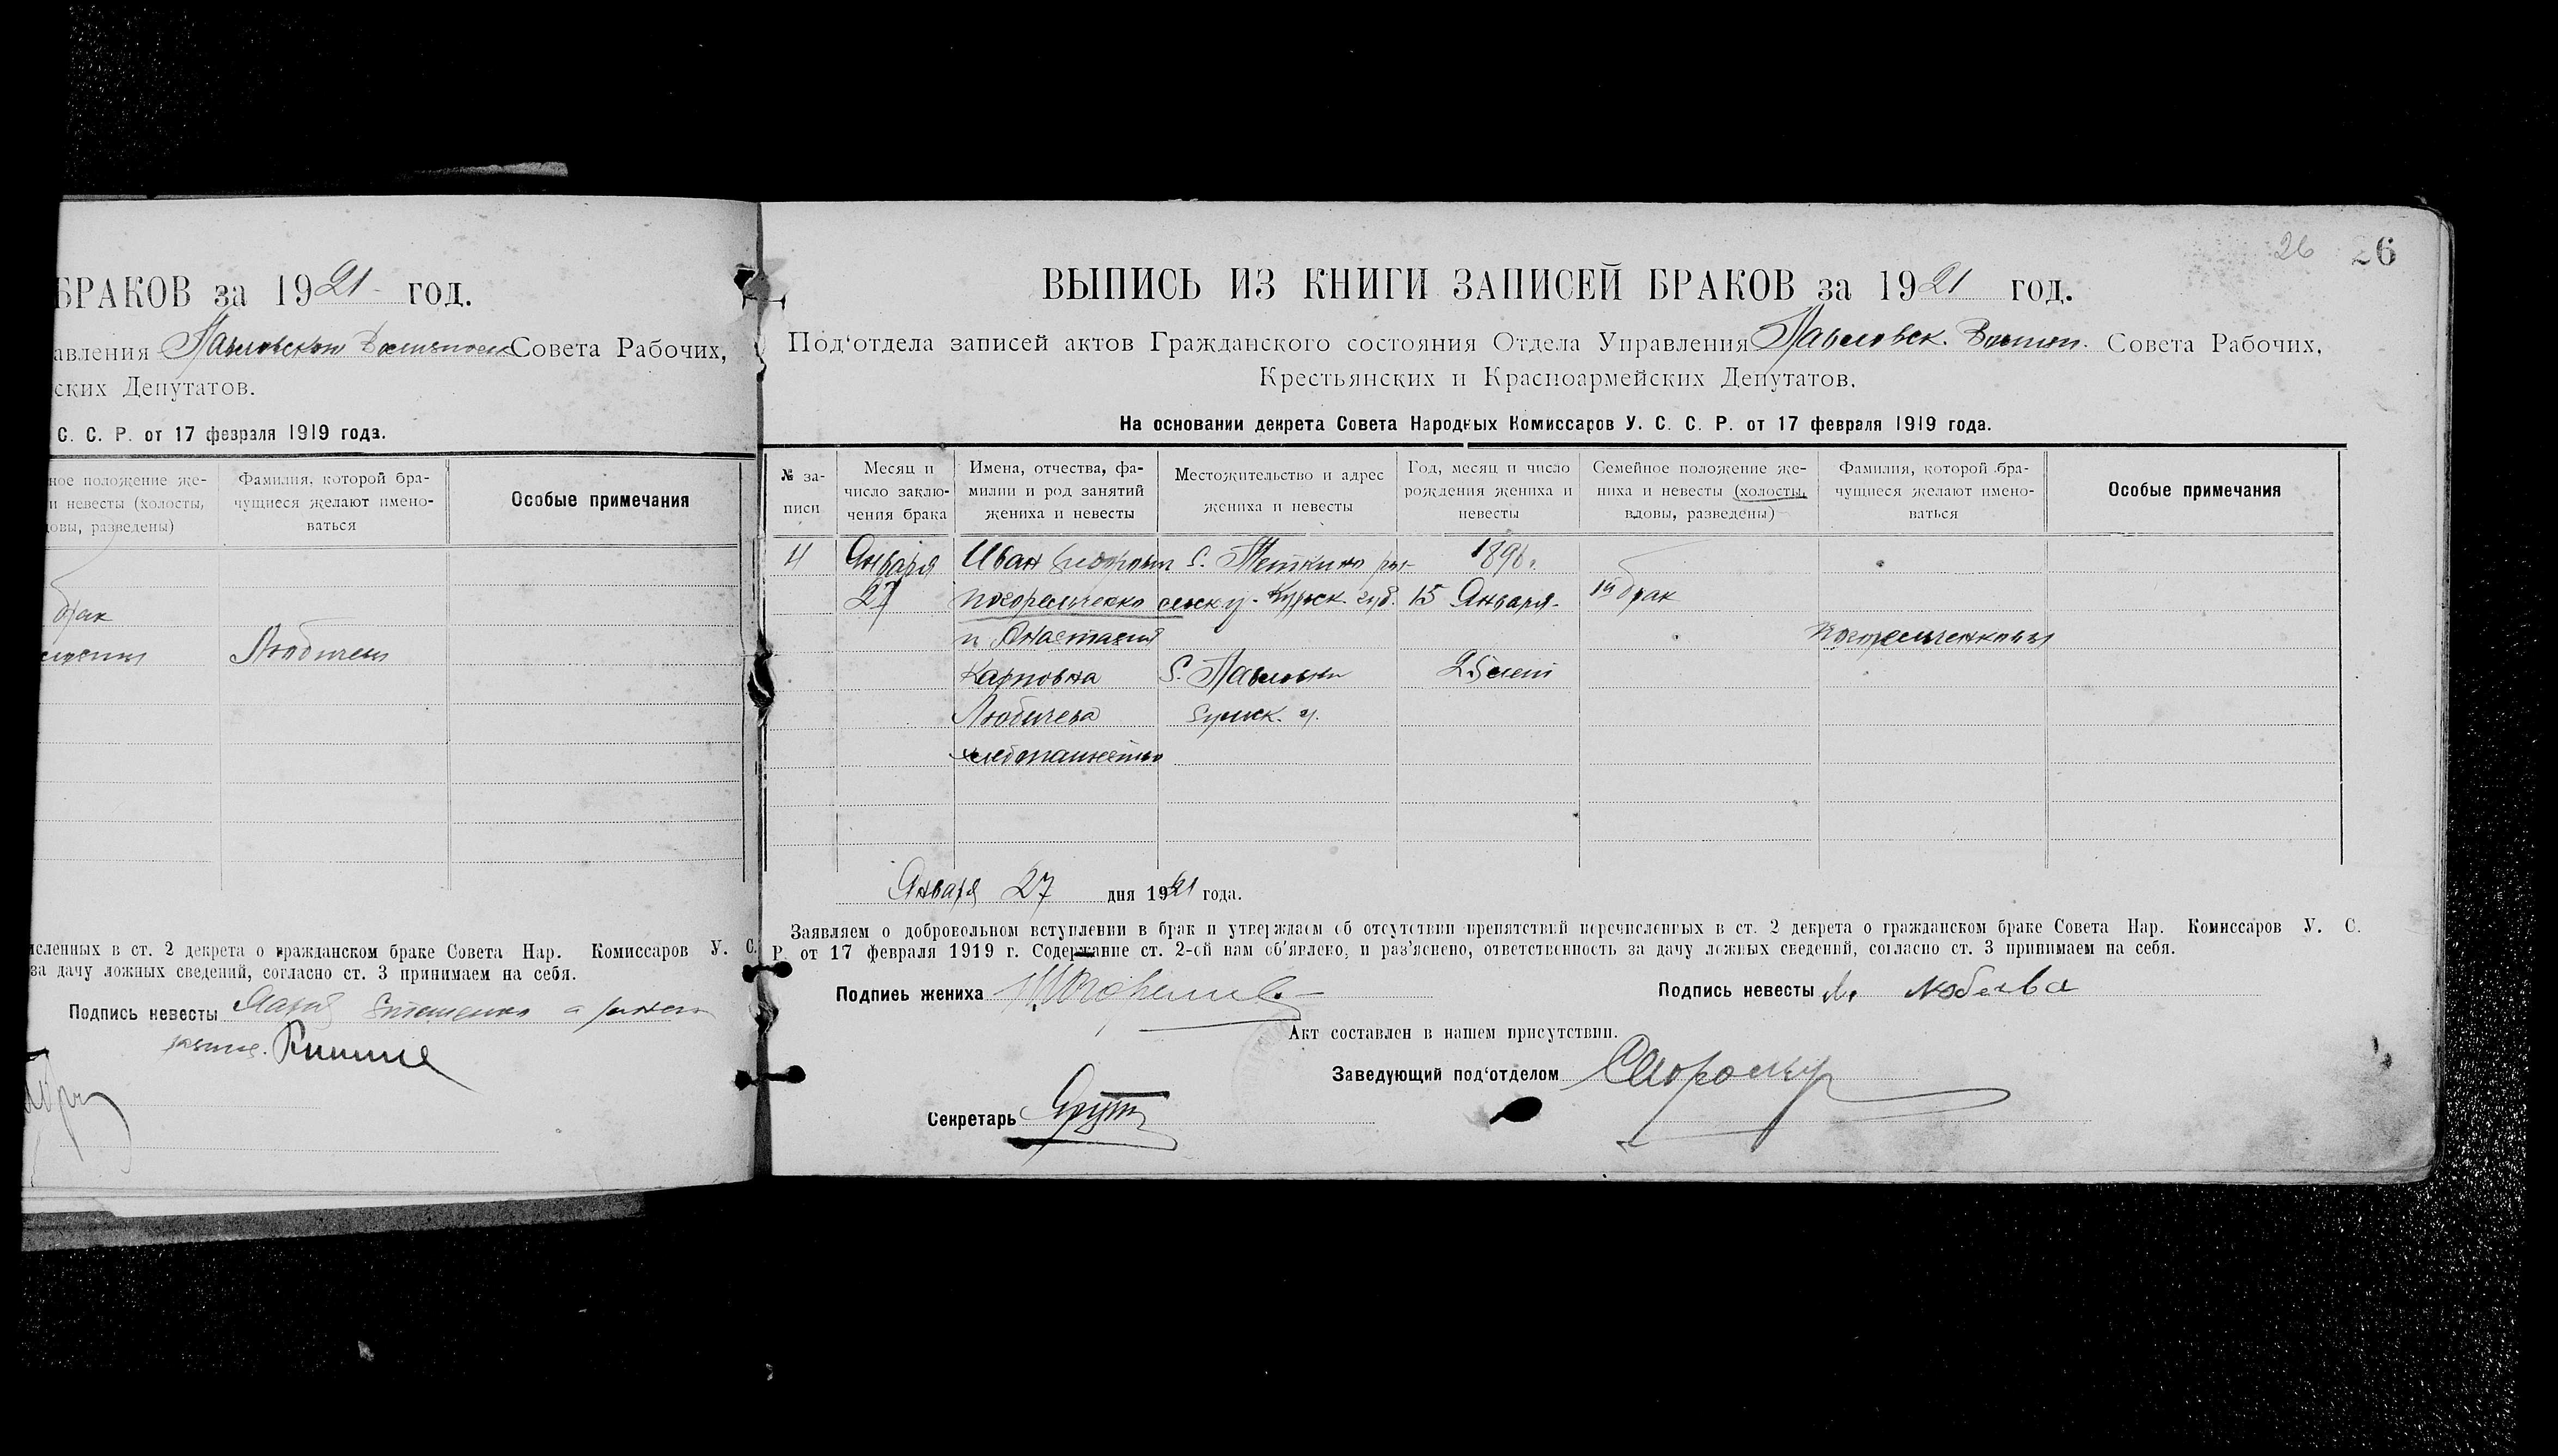 БРАКОВ за 1921 год.
авления Павловском Совета Рабочих,
ских Депутатов.
С. С. Р. от 17 февраля 1919 года.
ное положение же-
и невесты (холосты,
довы, разведены)
Фамилия, которой бра-
чущиеся желают имено-
ваться
Особые примечания
брак
исленных в ст. 2 декрета о гражданском браке Совета Нар. Комиссаров У. С.
за дачу ложных сведений, согласно ст. 3 принимаем на себя.
Подпись невесты
26 26
ВЫПИСЬ ИЗ КНИГИ ЗАПИСЕЙ БРАКОВ за 1921 год.
Под‘отдела записей актов Гражданского состояния Отдела Управления Павловск. Совета Рабочих,
Крестьянских и Красноармейских Депутатов.
На основании декрета Совета Народных Комиссаров У. С. С. Р. от 17 февраля 1919 года.
№ за-
писи
Месяц и
число заклю-
чения брака
Имена, отчества, фа-
милии и род занятий
жениха и невесты
Местожительство и адрес
жениха и невесты
Год, месяц и число
рождения жениха и
невесты
Семейное положение же-
ниха и невесты (холосты,
вдовы, разведены)
Фамилия, которой бра-
чущиеся желают имено-
ваться
Особые примечания
4 Января Иван с. Теткино 1896.
27 Погорельченко у. Курск. губ. 15 Января. 1й брак
и Анастасия
Карповна с. Павловки 25 лет
Любичева Сумск. у.
хлебопашество
Января 27 дня 1921 года.
Заявляем о добровольном вступлении в брак и утверждаем об отсутствии препятствий перечисленных в ст. 2 декрета о гражданском браке Совета Нар. Комиссаров У. С.
Р. от 17 февраля 1919 г. Содержание ст. 2-ой нам об‘явлено, и раз‘яснено, ответственность за дачу ложных сведений, согласно ст. 3 принимаем на себя.
Подпись жениха
Подпись невесты
Акт составлен в нашем присутствии.
Заведующий под‘отделом
Секретарь